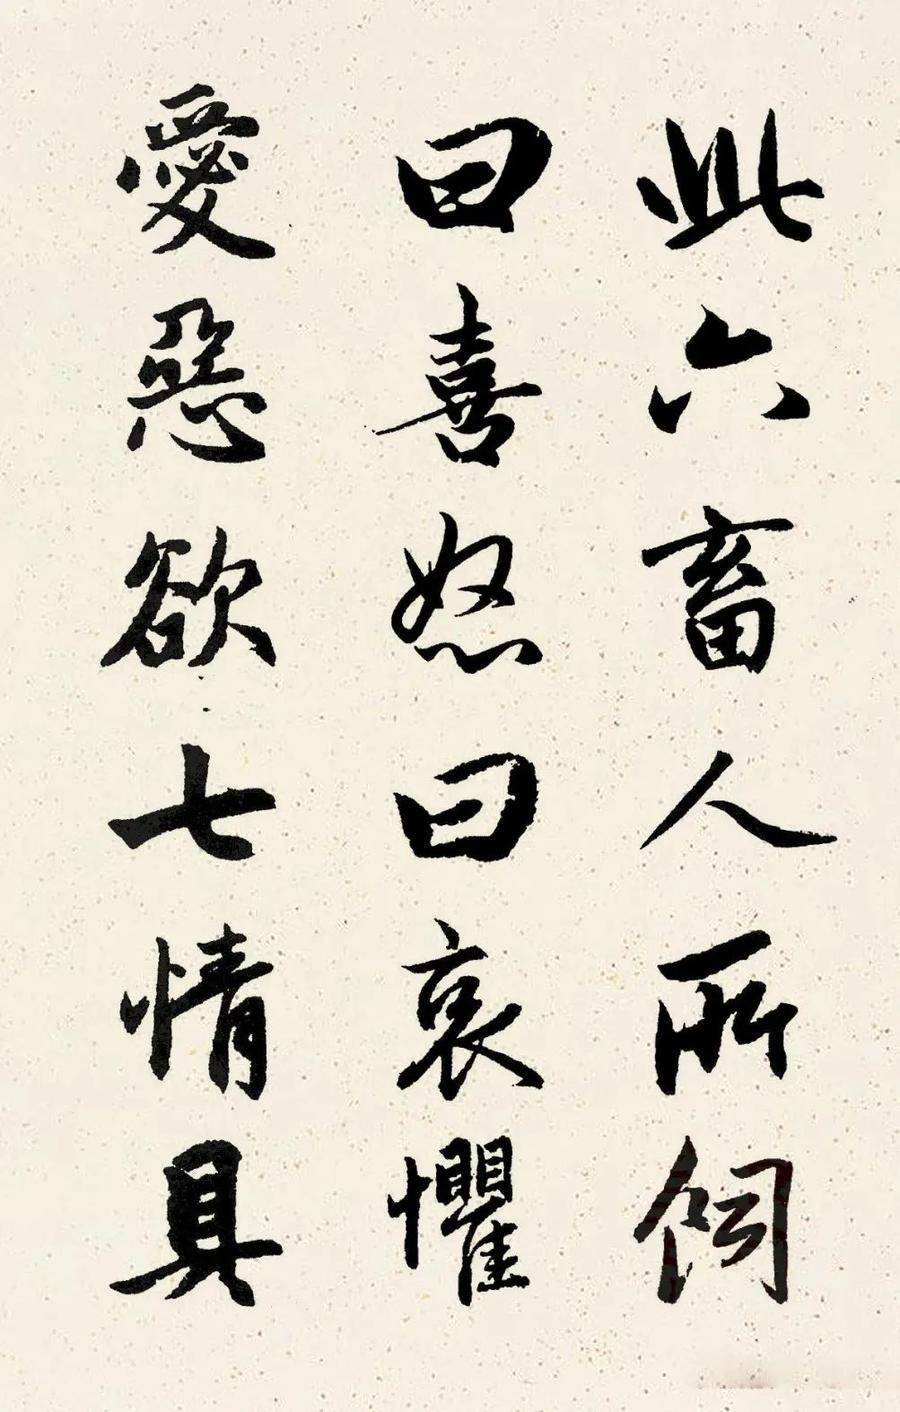 此六畜人所飼
曰喜怒曰哀懼
愛惡欲七情具